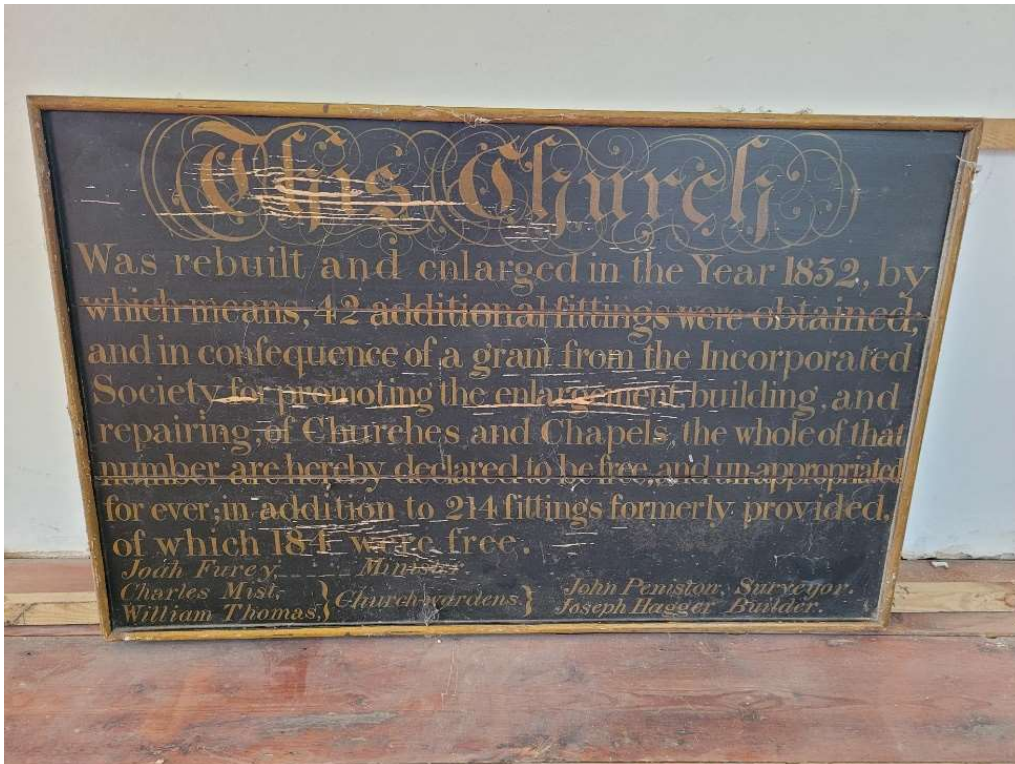 This Church
Was rebuilt and enlarged in the Year 1832, by
which means, 42 additional fittings were obtained,
and in confequence of a grant from the Incorporated
Society for promoting the enlargement, building, and
repairing, of Churches and Chapels, the whole of that
number are hereby declared to be free, and un-appropriated
for ever; in addition to 214 fittings formerly provided,
of which 184 were free.
Joah Furey, Minister
Charles Mist, } Churchwardens. } John Peniston, Surveyor.
William Thomas, Joseph Hagger Builder.